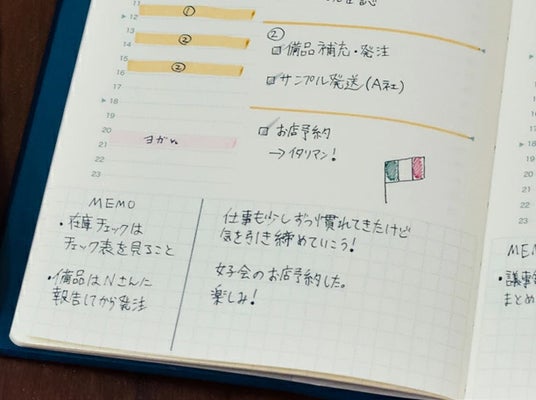 11
12
13
14
15
16
17
18
19
20
21
22
23
①
②
②
ヨガ
②
備品補充・発注
サンプル発送（A社）
お店予約
→イタリアン！
MEMO
・在庫チェックは
チェック表を見ること
・備品はNさんに
報告してから発注
仕事も少しずつ慣れてきたけど
気を引き締めていこう！
女子会のお店予約した。
楽しみ！
18
19
20
21
22
23
MEM
・議事
まとめ